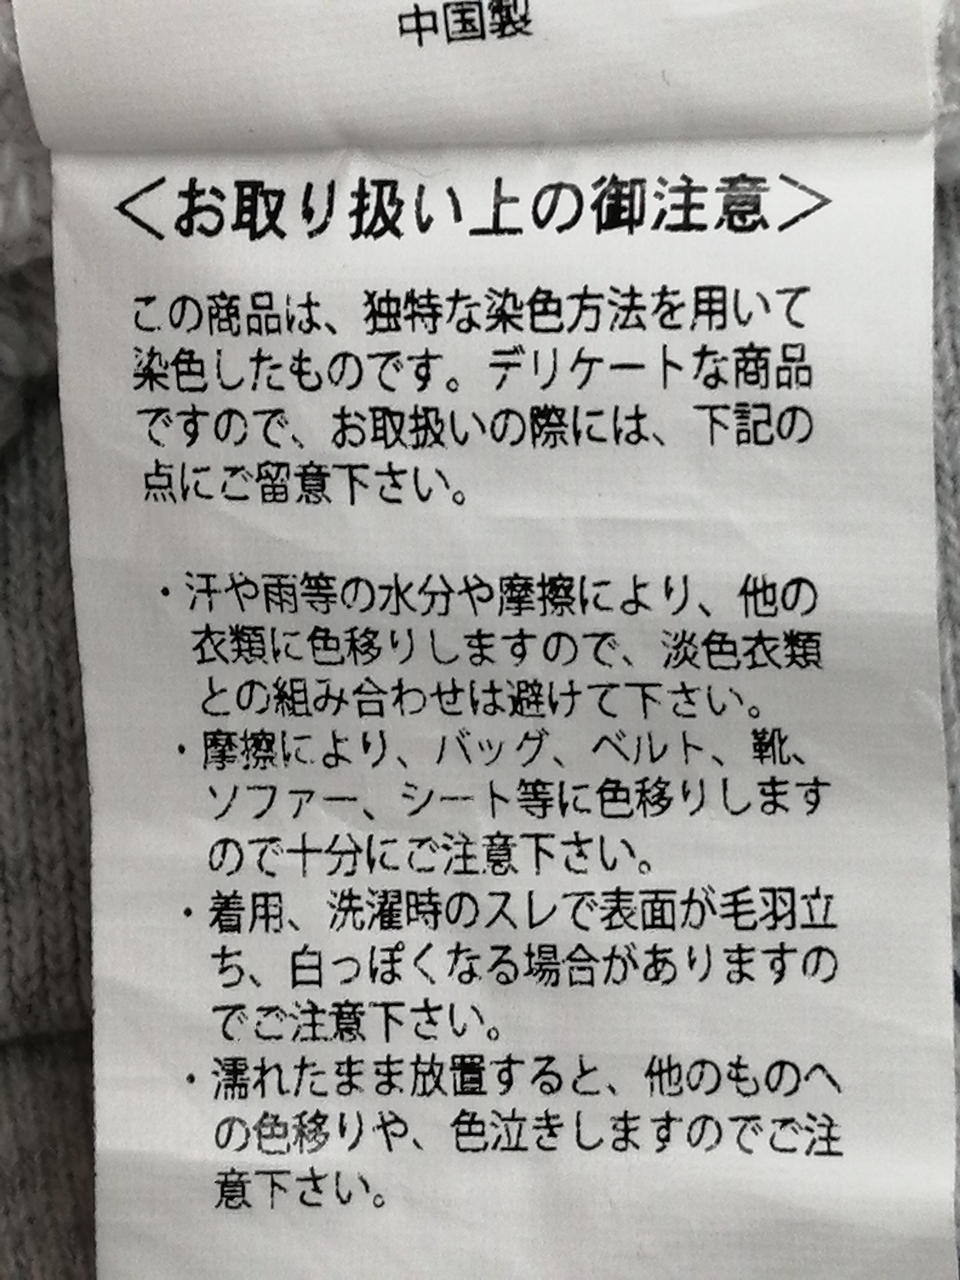 中国製
＜お取り扱い上の御注意＞
この商品は、独特な染色方法を用いて
染色したものです。デリケートな商品
ですので、お取扱いの際には、下記の
点にご留意下さい。
・汗や雨等の水分や摩擦により、他の
衣類に色移りしますので、淡色衣類
との組み合わせは避けて下さい。
・摩擦により、バッグ、ベルト、靴、
ソファー、シート等に色移りします
ので十分にご注意下さい。
・着用、洗濯時のスレで表面が毛羽立
ち、白っぽくなる場合がありますの
でご注意下さい。
・濡れたまま放置すると、他のものへ
の色移りや、色泣きしますのでご注
意下さい。